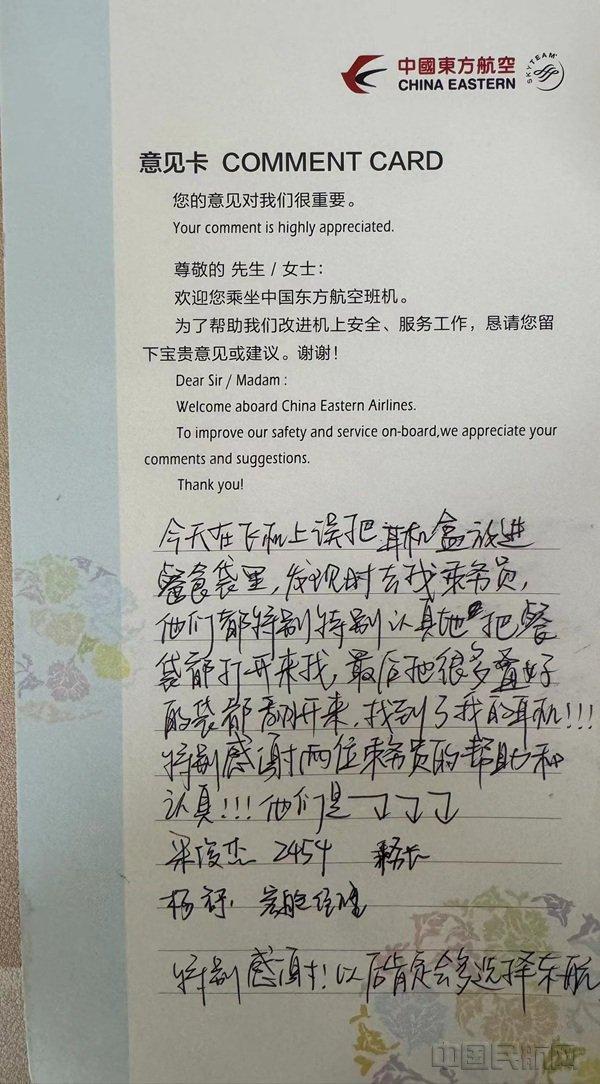 中國東方航空
CHINA EASTERN
SKYTEAM
意见卡 COMMENT CARD
您的意见对我们很重要。
Your comment is highly appreciated.
尊敬的 先生 / 女士：
欢迎您乘坐中国东方航空班机。
为了帮助我们改进机上安全、服务工作，恳请您留
下宝贵意见或建议。谢谢！
Dear Sir / Madam :
Welcome aboard China Eastern Airlines.
To improve our safety and service on-board,we appreciate your
comments and suggestions.
Thank you!
今天在飞机上误把耳机盒放进
餐食袋里，发现时去找乘务员，
他们都特别特别认真地把餐
袋都打开来找，最后把很多叠好
的袋都翻开来，找到了我的耳机!!!
特别感谢两位乘务员的帮助和
认真!!! 他们是
梁俊杰 2454 乘务长
杨 客舱经理
特别感谢！以后肯定会多选择东航
中国民航网